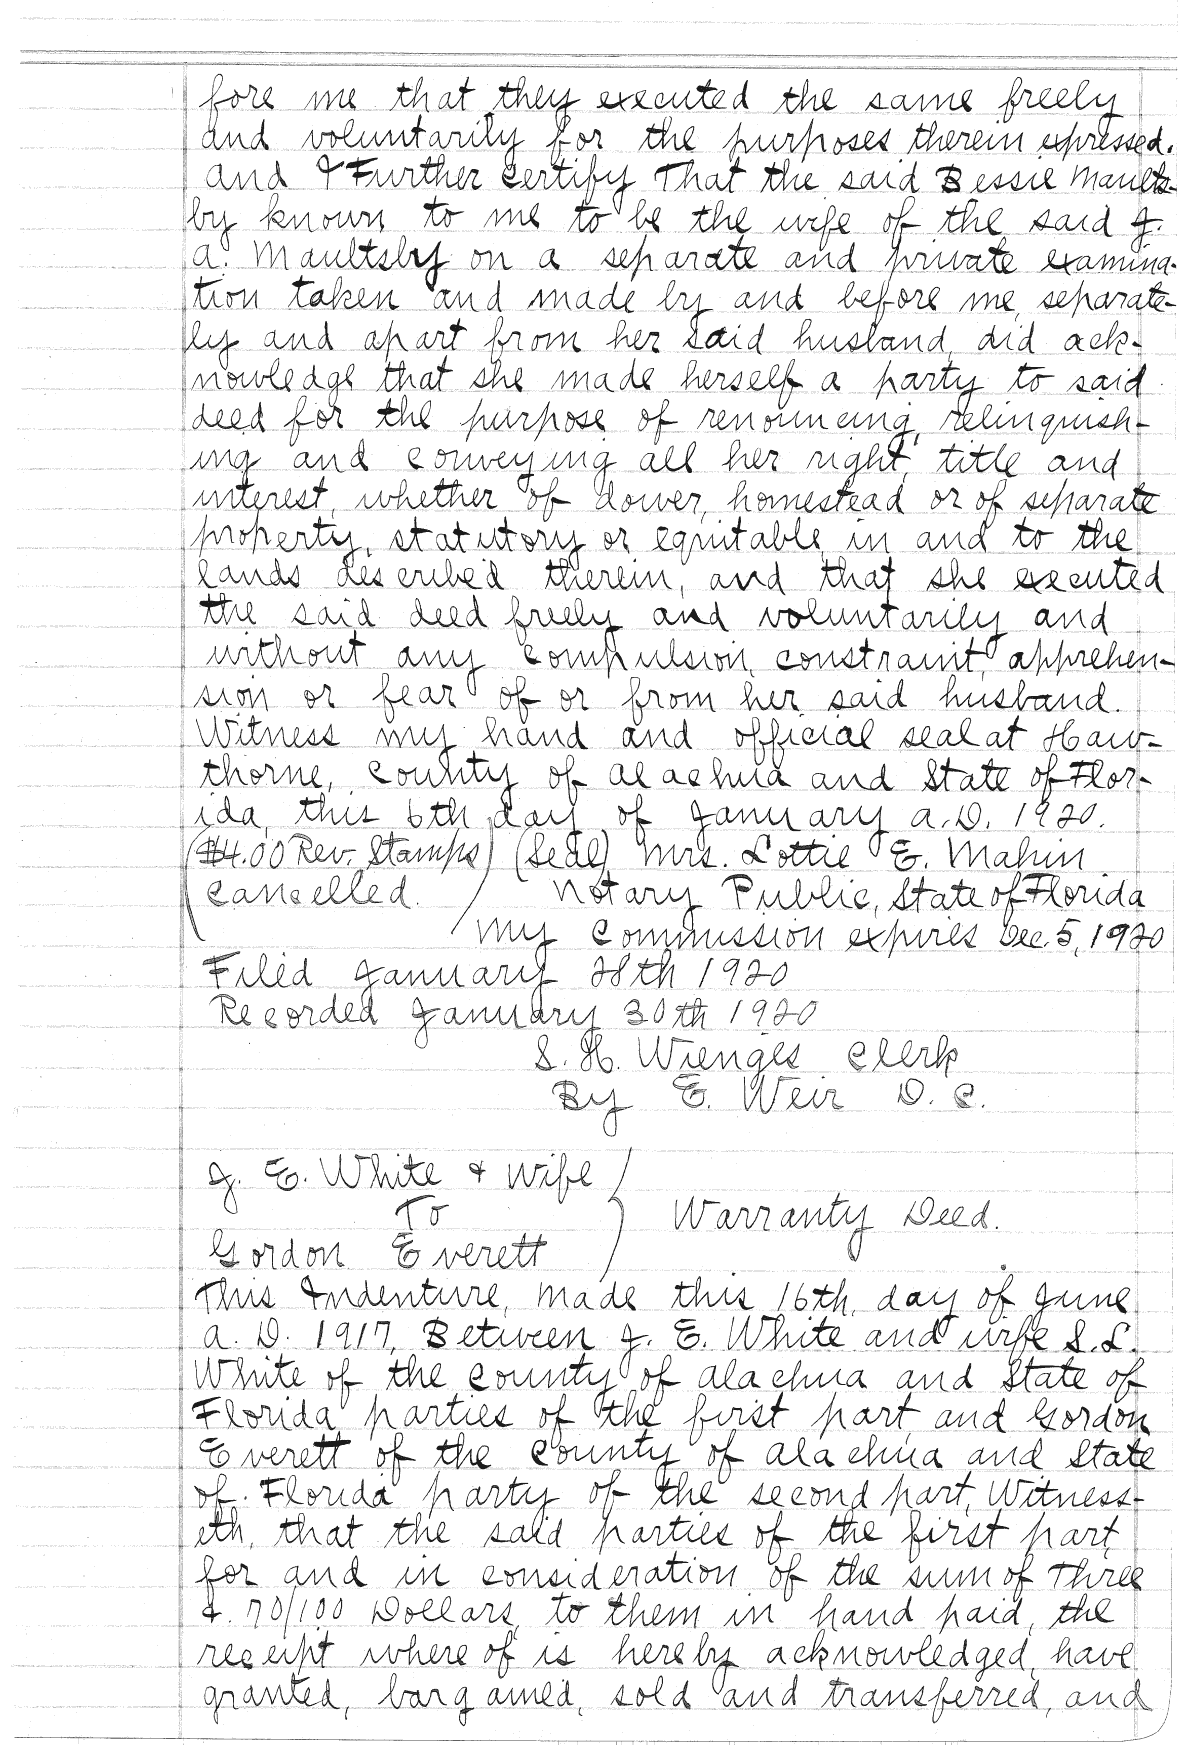 fore me that they executed the same freely
and voluntarily for the purposes therein expressed.
And I Further Certify That the said Bessie Maults-
by known to me to be the wife of the said J.
A. Maultsby on a separate and private examina-
tion taken and made by and before me, separate-
ly and apart from her said husband, did ack-
nowledge that she made herself a party to said
deed for the purpose of renouncing, relinquish-
ing and conveying all her right, title and
interest, whether of dower, homestead or of separate
property, statutory or equitable, in and to the
lands described therein, and that she executed
the said deed freely and voluntarily and
without any compulsion, constraint, apprehen-
sion or fear of or from her said husband.
Witness my hand and official seal at Haw-
thorne, County of Alachua and State of Flor-
ida, this 6th day of January A.D. 1920.
($4.00 Rev. Stamps) (Seal) Mrs. Lottie E. Mahin
Cancelled. Notary Public, State of Florida
My Commission expires Dec. 5, 1920
Filed January 28th 1920
Recorded January 30th 1920
S. H. Wienges Clerk
By E. Weir D. C.
J. E. White & Wife
To
Warranty Deed.
Gordon Everett
This Indenture, Made this 16th, day of June
A. D. 1917, Between J. E. White and wife S. L.
White of the County of Alachua and State of
Florida parties of the first part, and Gordon
Everett of the County of Alachua and State
of Florida party of the second part, Witness-
eth, that the said parties of the first part,
for and in consideration of the sum of Three
&. 70/100 Dollars, to them in hand paid, the
receipt where of is hereby acknowledged, have
granted, bargained, sold and transferred, and